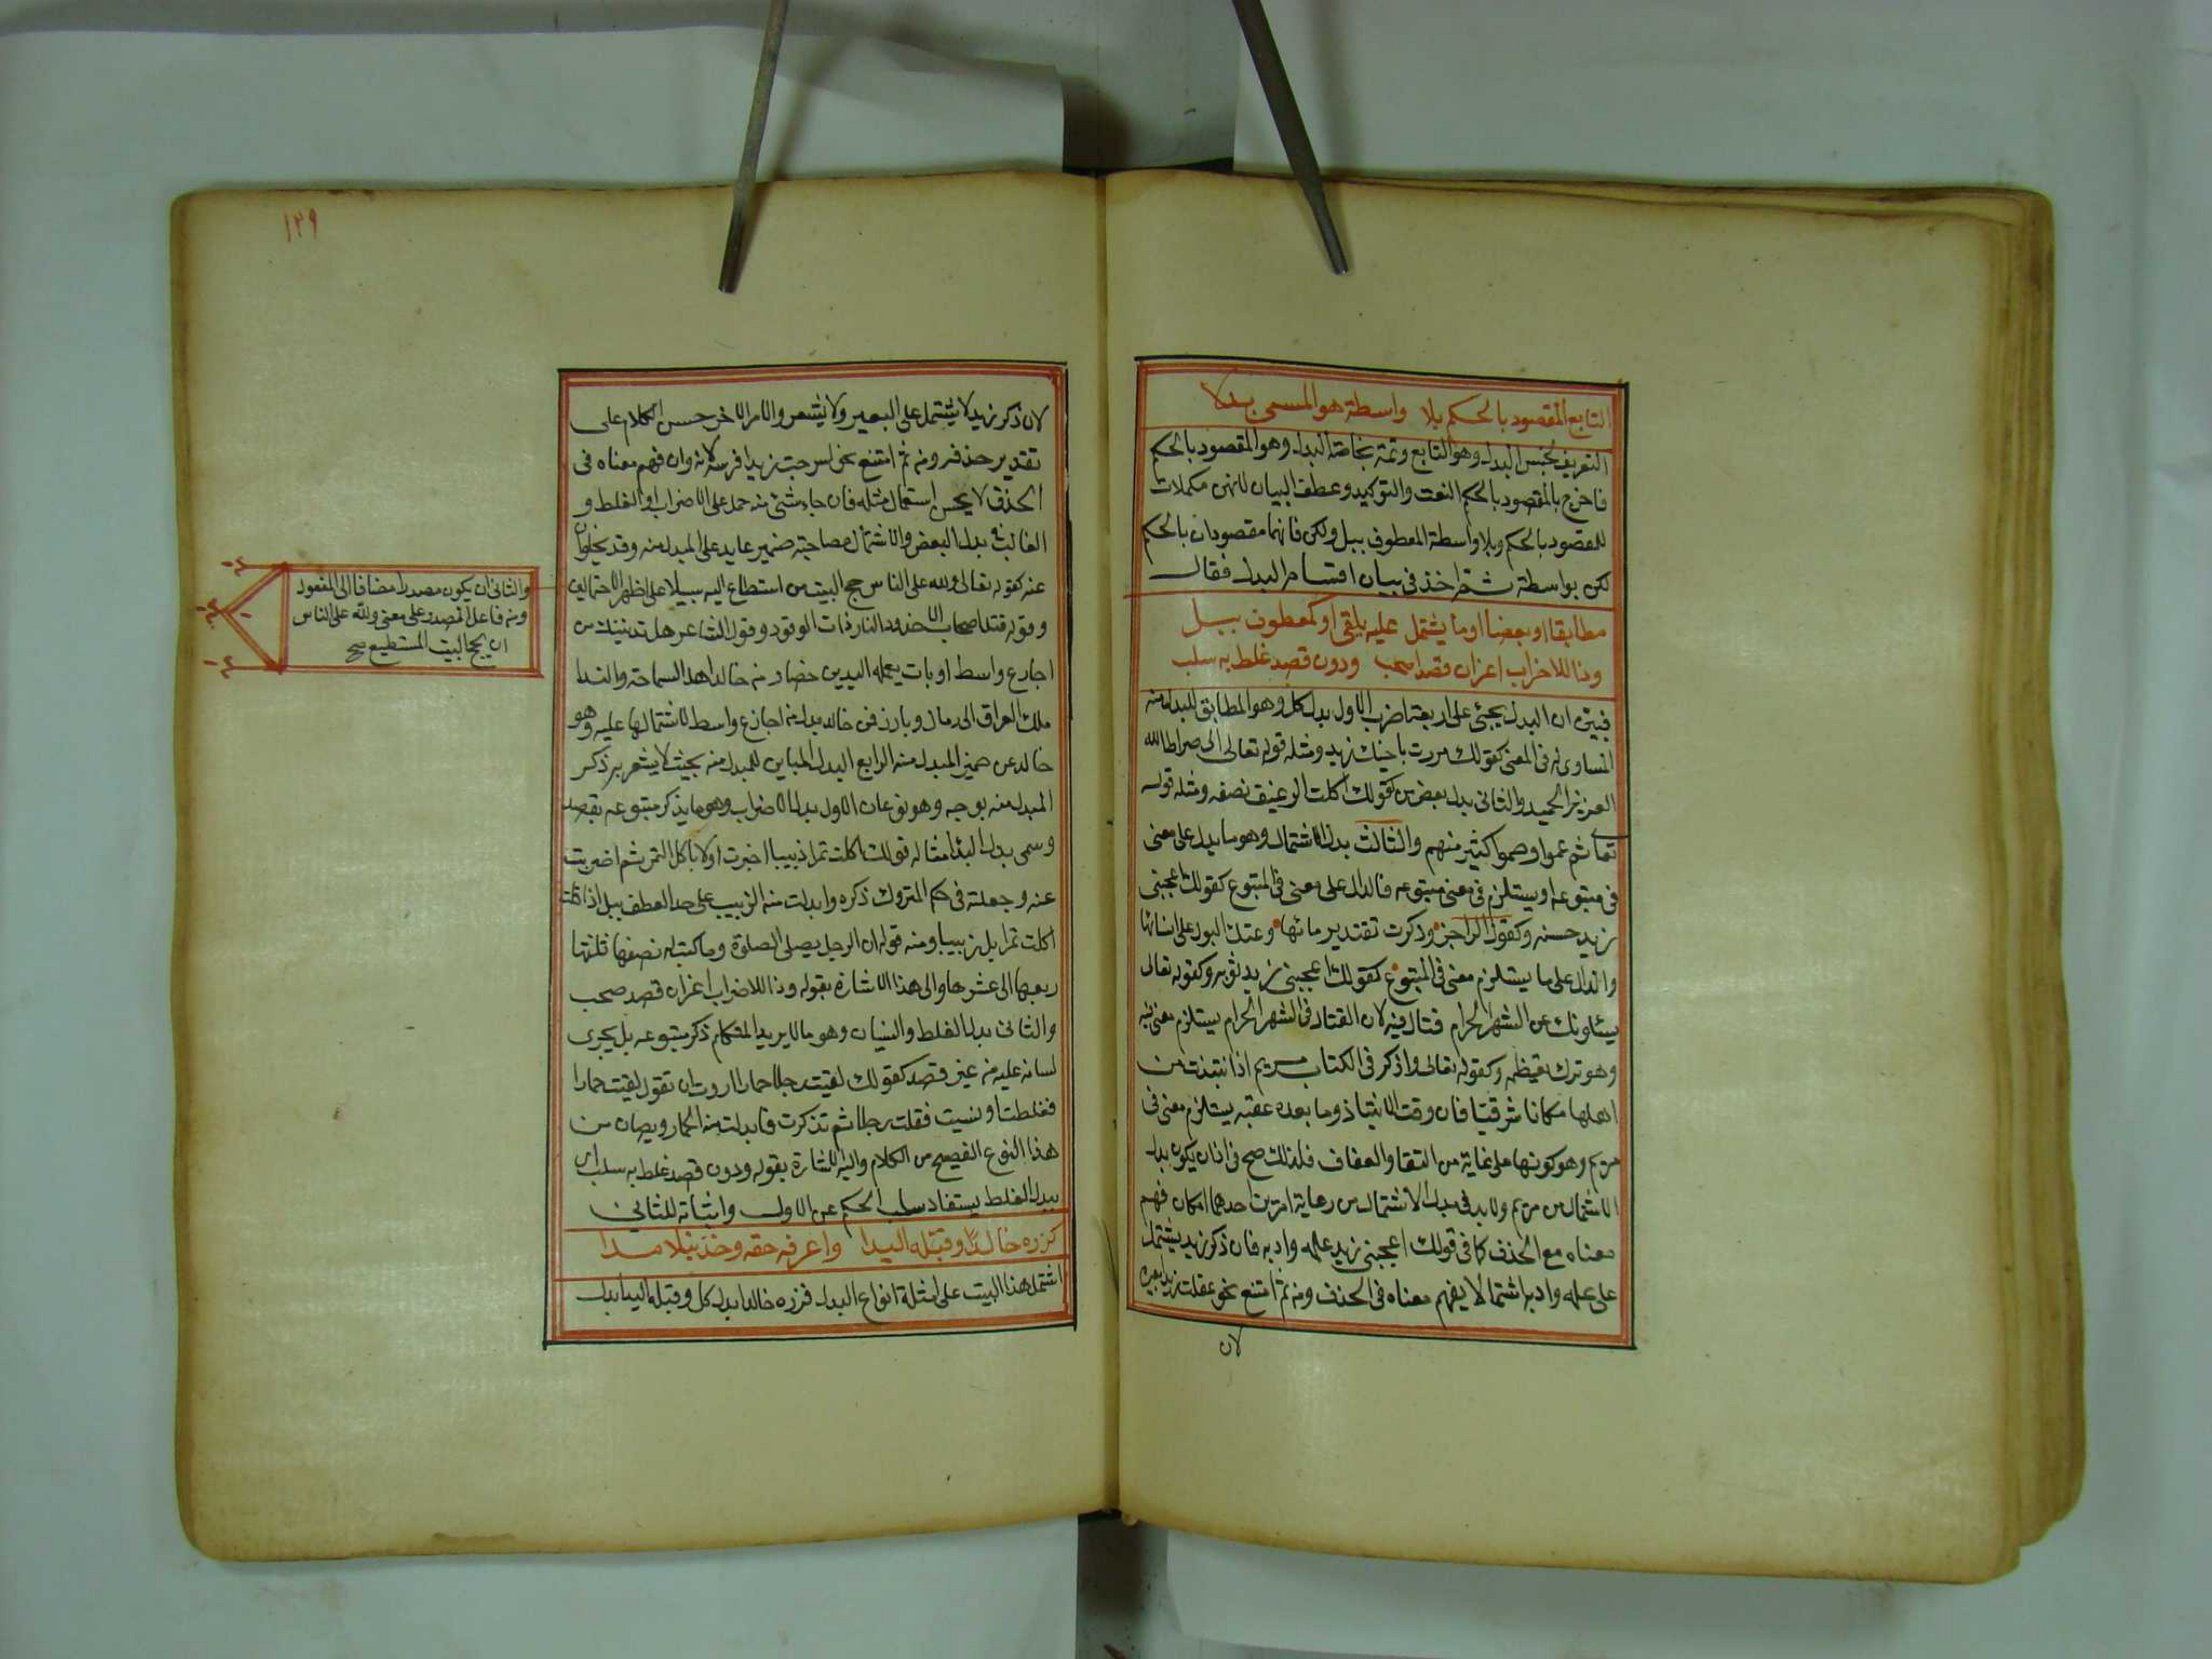 التابع المقصود بالحكم بلا واسطة هو المسمى بدلا
التعريف بجنس البدل وهو التابع وتمة بخاصة البدل وهو المقصود بالحكم
فاخرج بالمقصود بالحكم النعت والتوكيد وعطف البيان لانهن مكملات
للمقصود بالحكم وبلا واسطة المعطوف ببل ولكن فانهما مقصودان بالحكم
لكن بواسطة ثم اخذ في بيان اقسام البدل فقال
مطابقا او بعضا او ما يشتمل عليه يلقى او كمعطوف ببل
وذا للاضراب اعز ان قصدا صحب ودون قصد غلط به سلب
فبين ان البدل يجئ على اربعة اضرب الاول بدل كل وهو المطابق للمبدل منه
المساوى له فى المعنى كقولك مررت باخيك زيد ومثله قوله تعالى الى صراط الله
العزيز الحميد والثانى بدل بعض من كقولك اكلت الرغيف نصفه ومثله قوله
تعا ثم عموا وصموا كثير منهم والثالث بدل الاشتمال وهو ما يدل على معنى
فى متبوعه او يستلزم فى معنى متبوعه فالدال على معنى فى المتبوع كقولك اعجبنى
زيد حسنه وكقول الراجز وذكرت تقتد برد مائها وعتك البول على انسائها
والدال على ما يستلزم معنى فى المتبوع كقولك اعجبنى زيد ثوبه وكقوله تعالى
يسئلونك عن الشهر الحرام قتال فيه لان القتال فى الشهر الحرام يستلزم معنى فيه
وهو ترك تعظيمه وكقوله تعالى واذكر فى الكتاب مريم اذ انتبذت من
اهلها مكانا شرقيا فان وقت الانتباذ وما بعده عقبه يستلزم معنى فى
مريم وهو كونها على غاية من التقا والعفاف فلذلك صح فى اذ ان يكون بدل
الاشتمال من مريم ولابد فى بدل الاشتمال من رعاية امرين احدهما امكان فهم
معناه مع الحذف كما فى قولك اعجبنى زيد علمه وادبه فان ذكر زيد يشتمل
على علمه وادبه اشتمالا يفهم معناه فى الحذف ومن ثم امتنع نحو عقلت زيدا بعيره
لان
١٢٩
لان ذكر زيد لا يشتمل على البعير ولا يشعر والامر الاخر حسن الكلام على
تقدير حذفه ومن ثم امتنع نحو اسرجت زيدا فرسه لانه وان فهم معناه فى
الحذف لا يحسن استعمال مثله فان جاء شئ منه حمل على الاضراب او الغلط و
الغالب فى بدل البعض والاشتمال مصاحبته ضمير عايد على المبدل منه وقد يخلوان
عنه كقوله تعالى ولله على الناس حج البيت من استطاع اليه سبيلا على اظهر الاحتمالين
وقوله قتل اصحاب الاخدود النار ذات الوقود وقول الشاعر هل تدنينك من
اجارع واسط اوبات يعملة اليدين حضار من خالد اهل السماحة والندا
ملك العراق الى رمال وبار فمن خالد بدل من اجارع واسط لاشتمالها عليه وهو
خال عن ضمير المبدل منه الرابع البدل المباين للمبدل منه بحيث لا يشعر به ذكر
المبدل منه بوجه وهو نوعان الاول بدل الاضراب وهو ما يذكر متبوعه بقصد
وسمى بدل البدا مثاله قولك اكلت تمرا زبيبا اخبرت اولا باكل التمر ثم اضربت
عنه وجعلته فى حكم المتروك ذكره وابدلت منه الزبيب على حد العطف ببل اذا قلت
اكلت تمرا بل زبيبا ومنه قوله ان الرجل يصلى الصلوة وما كتب له نصفها ثلثها
ربعها الى عشرها والى هذا الاشارة بقوله وذا للاضراب اعز ان قصد صحب
والثانى بدل الغلط والنسيان وهو ما لا يريد المتكلم ذكر متبوعه بل يجرى
لسانه عليه من غير قصد كقولك لقيت رجلا حمارا اردت ان تقول لقيت حمارا
فغلطت او نسيت فقلت رجلا ثم تذكرت فابدلت منه الحمار ويصان من
هذا النوع الفصيح من الكلام واليه الاشارة بقوله ودون قصد غلط به سلب اى
ببدل الغلط يستفاد سلب الحكم عن الاول واثباته للثانى
كزره خالدا وقبله اليدا واعرفه حقه وخذ نبلا مدا
اشتمل هذا البيت على امثلة انواع البدل فزره خالدا بدل كل وقبله اليدا بدل
والثانى ان يكون مصدرا مضافا الى المفعول
ومن فاعل المصدر على معنى ولله على الناس
ان يحج البيت المستطيع صح